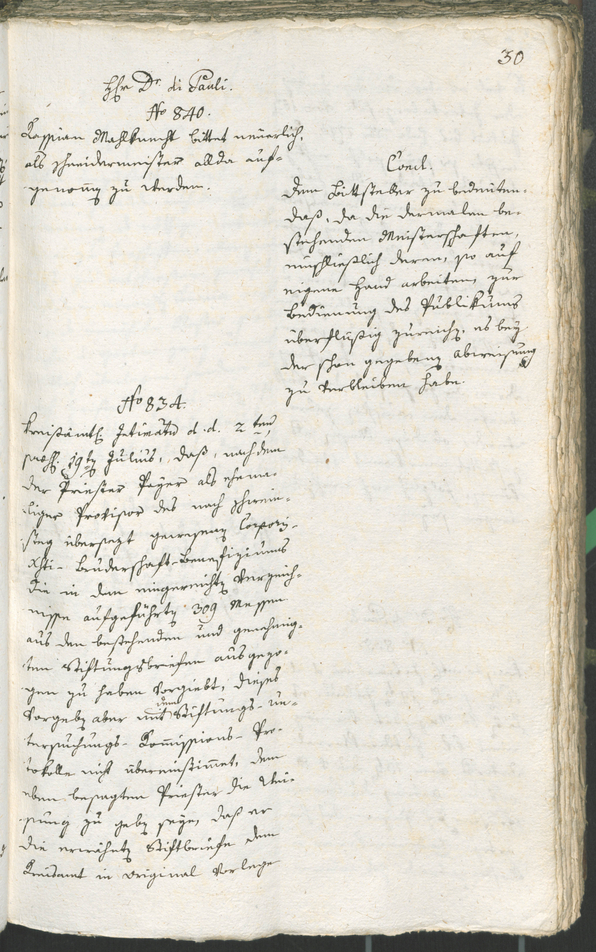 30
Hr. Dr. di Pauli.
No 840.
Kassian Mahlknecht bittet neuerlich,
als Schneidermeister allda auf-
genomen zu werden.
Concl.
Dem Bittsteller zu bedeuten,
daß, da die dermalen be-
stehenden Meisterschaften,
einschließlich deren, so auf
eigene Hand arbeiten, zur
Bedienung des Publikums
überflüßig zureichen, es bey
der schon gegebenen Abweisung
zu verbleiben habe.
No 834.
Kreisämtl. Intimatum d. d. 2ten
29ten Julius, daß, nachdem
der Priester Payer als ehema-
liger Provisor des nach
übersezt gewesenen Corporis-
Xsti-Bruderschaft-Benefiziums
die in dem eingereichten Verzeich-
nisse aufgeführten 309 Messen
aus den bestehenden und genehmig-
ten Stiftungsbriefen ausgezo-
gen zu haben vorgiebt, dieses
Vorgeben aber mit dem Stiftungs-un-
tersuchungs-Kommissions-Pro-
tokolle nicht übereinstimmet, dem
eben besagten Priester die Wei-
sung zu geben seye, daß er
die erwähnten Stiftbriefe dem
Kreisamt in Original vorlege